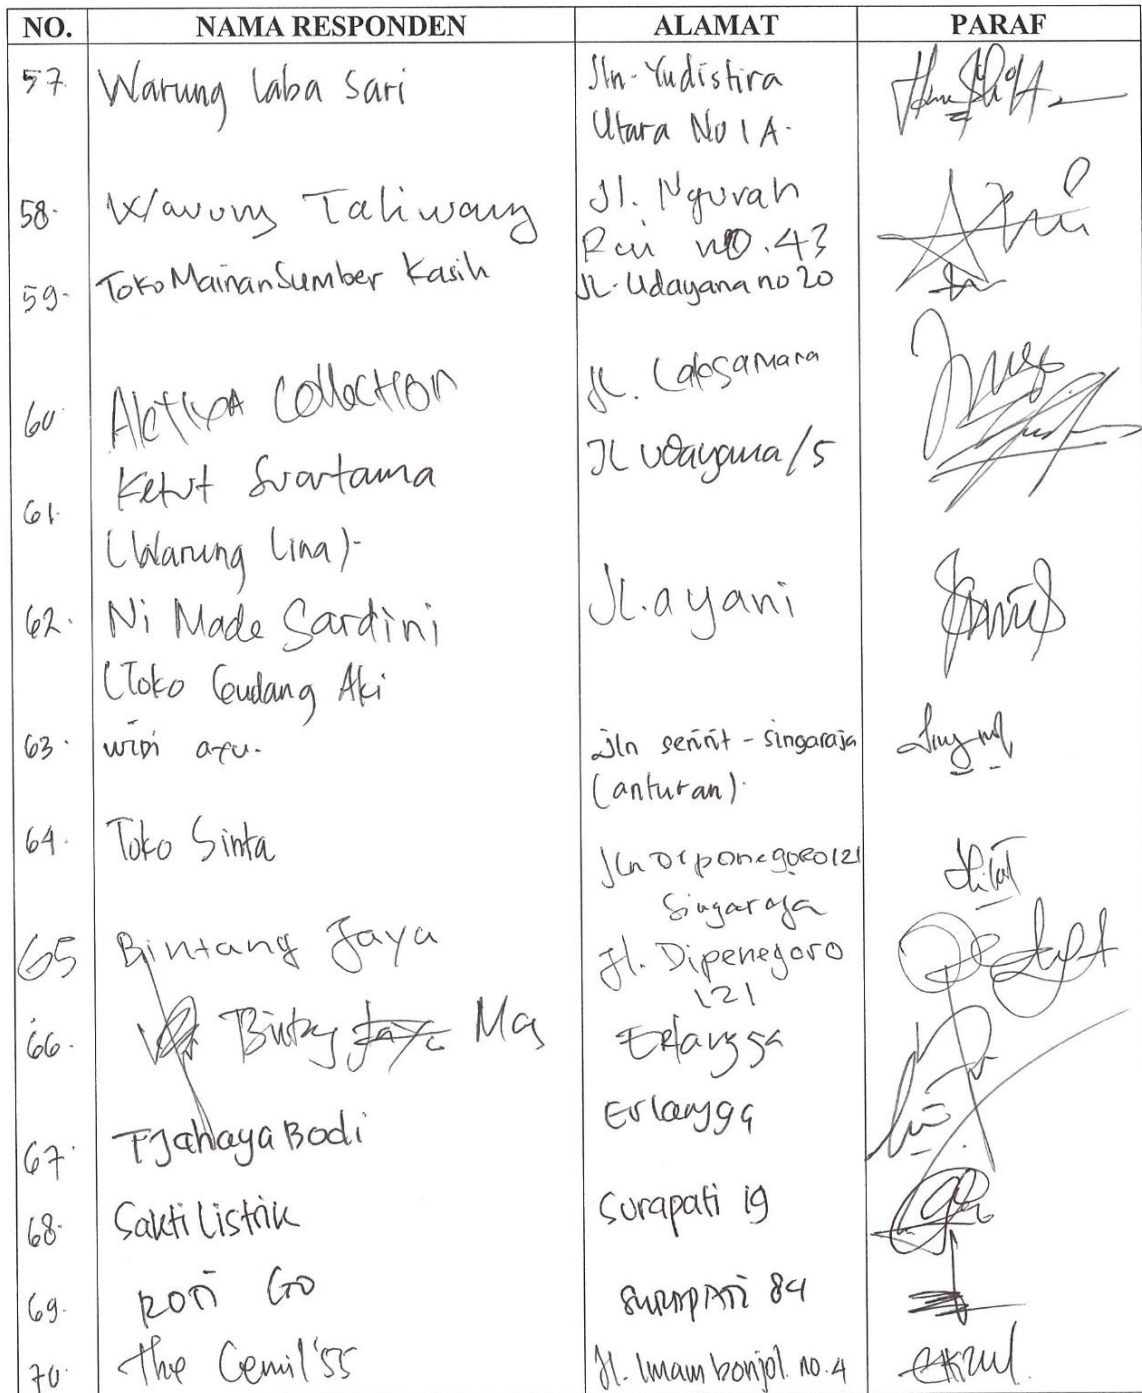 NO. NAMA RESPONDEN ALAMAT PARAF
57. Warung Laba Sari Jln. Yudistira
Utara No 1 A.
58. Warung Taliwang Jl. Ngurah
Rai no. 43
59. Toko Mainan Sumber Kasih JL. Udayana no 20
60. Collection JL.
61. Ketut Suartama JL Udayana/5
(Warung Lina).
62. Ni Made Sardini JL. a yani
(Toko Gudang Aki
63. widi ayu. Jln seririt - singaraja
(anturan).
64. Toko Sinta Jln Diponegoro 121
Singaraja
65 Bintang Jaya Jl. Dipenegoro
121
66. Erlangga
67. TJahaya Bodi Erlangga
68. Sakti Listrik Surapati 19
69. ROTI GO SURAPATI 84
70. The Cemil'55 Jl. Imam bonjol. no. 4